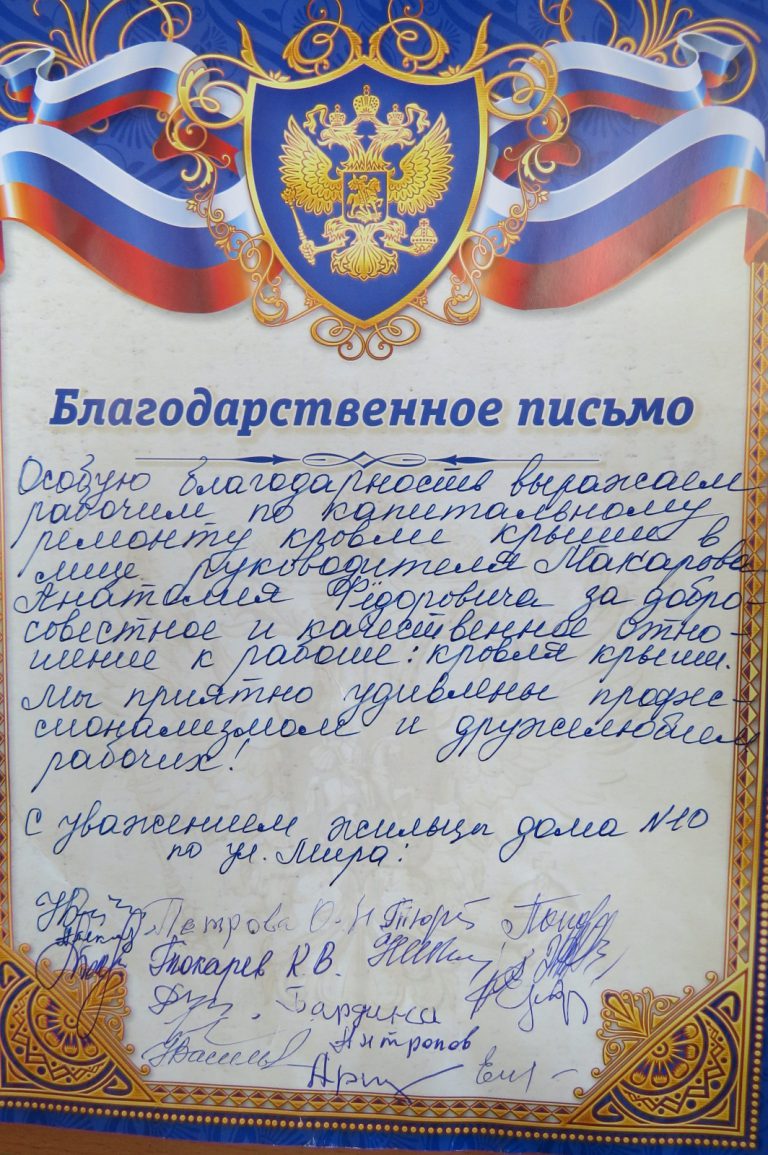 Благодарственное письмо
Особую благодарность выражаем
рабочим по капитальному
ремонту кровли крыши в
лице руководителя Макарова
Анатолия Фёдоровича за добро-
совестное и качественное отно-
шение к работе: кровля крыши.
Мы приятно удивлены профес-
сионализмом и дружелюбием
рабочих!
С уважением жильцы дома №10
по ул. Мира:
Петрова О.Н.
Токарев К.В.
Бардина
Антропов